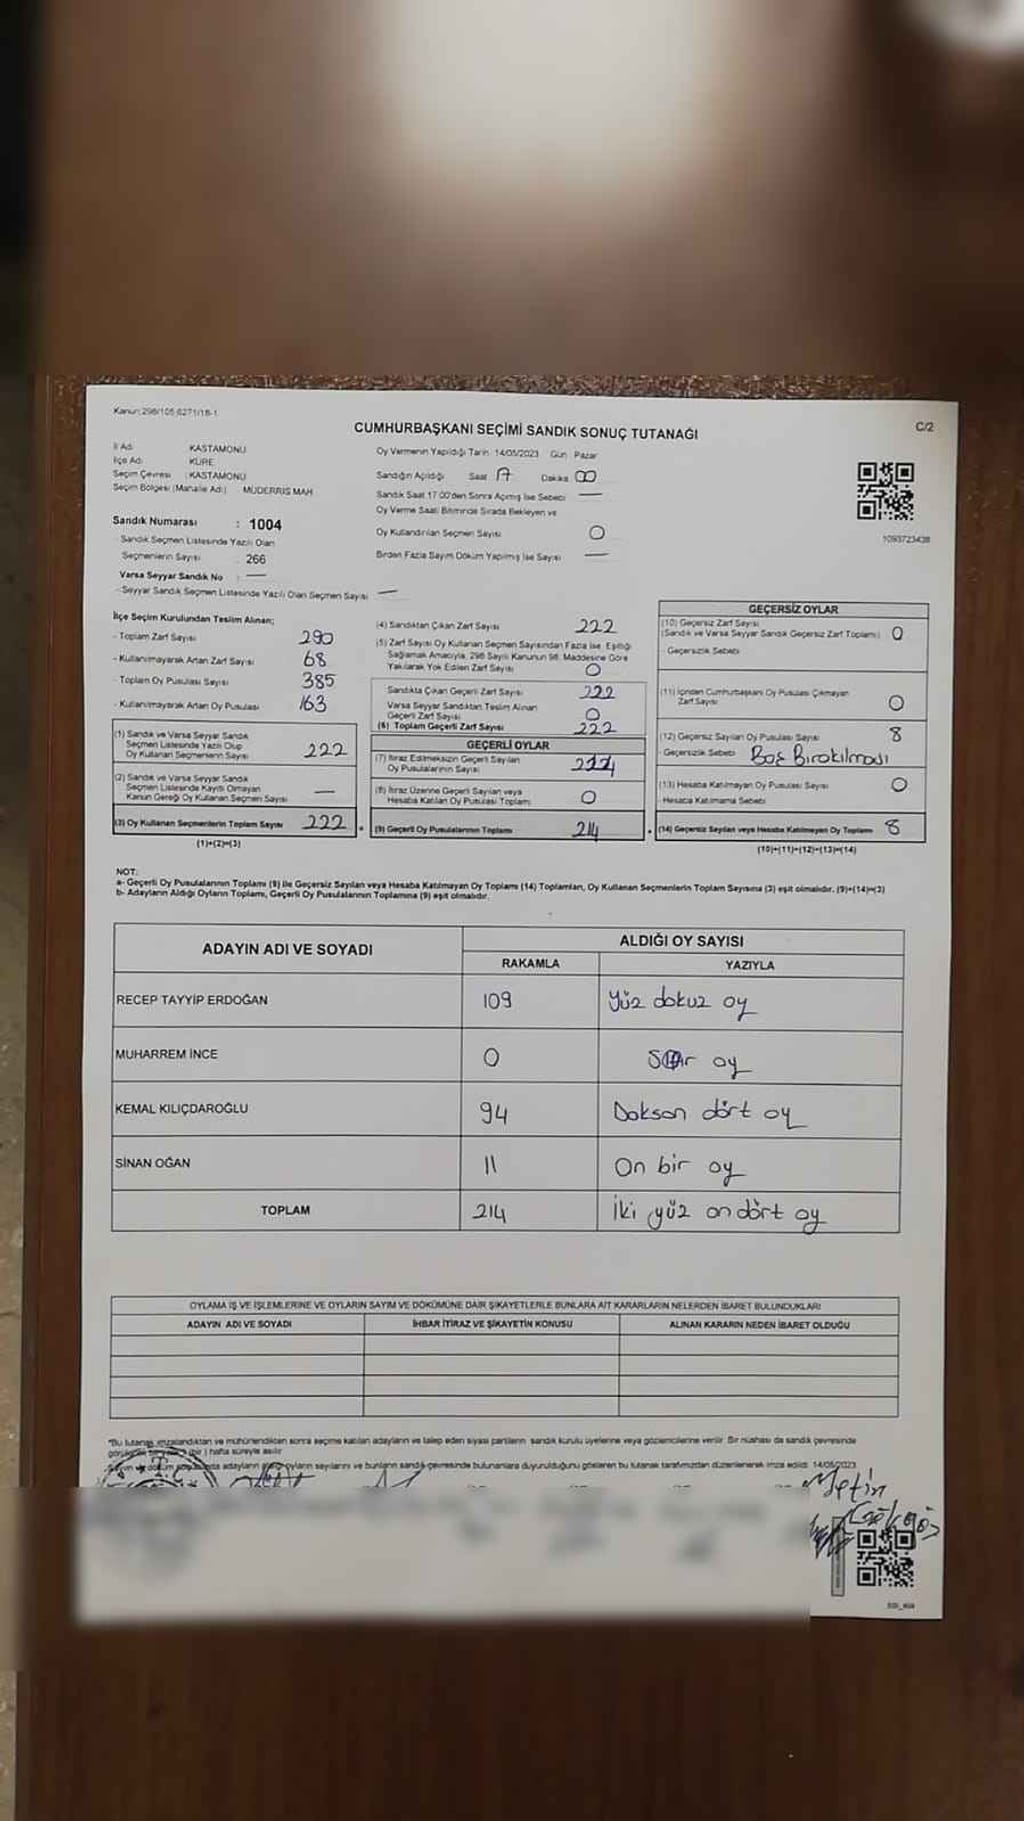 Kanun:298/105,6271/18-1
CUMHURBAŞKANI SEÇİMİ SANDIK SONUÇ TUTANAĞI
C/2
İl Adı KASTAMONU
İlçe Adı KÜRE
Seçim Çevresi : KASTAMONU
Seçim Bölgesi (Mahalle Adı) MÜDERRİS MAH
Sandık Numarası : 1004
- Sandık Seçmen Listesinde Yazılı Olan
Seçmenlerin Sayısı : 266
Varsa Seyyar Sandık No : —
- Seyyar Sandık Seçmen Listesinde Yazılı Olan Seçmen Sayısı —
Oy Vermenin Yapıldığı Tarih 14/05/2023 Gün Pazar
Sandığın Açıldığı Saat 17 Dakika 00
Sandık Saat 17.00'den Sonra Açılmış İse Sebebi —
Oy Verme Saati Bitiminde Sırada Bekleyen ve
Oy Kullandırılan Seçmen Sayısı 0
Birden Fazla Sayım Döküm Yapılmış İse Sayısı —
1093723438
İlçe Seçim Kurulundan Teslim Alınan;
- Toplam Zarf Sayısı 290
- Kullanılmayarak Artan Zarf Sayısı 68
- Toplam Oy Pusulası Sayısı 385
- Kullanılmayarak Artan Oy Pusulası 163
(1) Sandık ve Varsa Seyyar Sandık
Seçmen Listesinde Yazılı Olup
Oy Kullanan Seçmenlerin Sayısı 222
(2) Sandık ve Varsa Seyyar Sandık
Seçmen Listesinde Kayıtlı Olmayan
Kanun Gereği Oy Kullanan Seçmen Sayısı —
(3) Oy Kullanan Seçmenlerin Toplam Sayısı 222
(1)+(2)=(3)
(4) Sandıktan Çıkan Zarf Sayısı 222
(5) Zarf Sayısı Oy Kullanan Seçmen Sayısından Fazla İse, Eşitliği
Sağlamak Amacıyla, 298 Sayılı Kanunun 98. Maddesine Göre
Yakılarak Yok Edilen Zarf Sayısı 0
Sandıkta Çıkan Geçerli Zarf Sayısı 222
Varsa Seyyar Sandıktan Teslim Alınan
Geçerli Zarf Sayısı 0
(6) Toplam Geçerli Zarf Sayısı 222
GEÇERLİ OYLAR
(7) İtiraz Edilmeksizin Geçerli Sayılan
Oy Pusulalarının Sayısı
(8) İtiraz Üzerine Geçerli Sayılan veya
Hesaba Katılan Oy Pusulası Toplamı 0
(9) Geçerli Oy Pusulalarının Toplamı 214
GEÇERSİZ OYLAR
(10) Geçersiz Zarf Sayısı
(Sandık ve Varsa Seyyar Sandık Geçersiz Zarf Toplamı) 0
- Geçersizlik Sebebi
(11) İçinden Cumhurbaşkanı Oy Pusulası Çıkmayan
Zarf Sayısı 0
(12) Geçersiz Sayılan Oy Pusulası Sayısı 8
- Geçersizlik Sebebi Boş Bırakılması
(13) Hesaba Katılmayan Oy Pusulası Sayısı 0
- Hesaba Katılmama Sebebi
(14) Geçersiz Sayılan veya Hesaba Katılmayan Oy Toplamı 8
(10)+(11)+(12)+(13)=(14)
NOT:
a- Geçerli Oy Pusulalarının Toplamı (9) ile Geçersiz Sayılan veya Hesaba Katılmayan Oy Toplamı (14) Toplamları, Oy Kullanan Seçmenlerin Toplam Sayısına (3) eşit olmalıdır. (9)+(14)=(3)
b- Adayların Aldığı Oyların Toplamı, Geçerli Oy Pusulalarının Toplamına (9) eşit olmalıdır.
ADAYIN ADI VE SOYADI ALDIĞI OY SAYISI
RAKAMLA YAZIYLA
RECEP TAYYİP ERDOĞAN 109 Yüz dokuz oy
MUHARREM İNCE 0 Sıfır oy
KEMAL KILIÇDAROĞLU 94 Doksan dört oy
SİNAN OĞAN 11 On bir oy
TOPLAM 214 İki yüz on dört oy
OYLAMA İŞ VE İŞLEMLERİNE VE OYLARIN SAYIM VE DÖKÜMÜNE DAİR ŞİKAYETLERLE BUNLARA AİT KARARLARIN NELERDEN İBARET BULUNDUKLARI
ADAYIN ADI VE SOYADI İHBAR İTİRAZ VE ŞİKAYETİN KONUSU ALINAN KARARIN NEDEN İBARET OLDUĞU
*Bu tutanak imzalandıktan ve mühürlendikten sonra seçime katılan adayların ve talep eden siyasi partilerin sandık kurulu üyelerine veya gözlemcilerine verilir. Bir nüshası da sandık çevresinde
(bir) hafta süreyle asılır.
adayların oyların sayılarını ve bunların sandık çevresinde bulunanlara duyurulduğunu gösteren bu tutanak tarafımızdan düzenlenerek imza edildi. 14/05/2023
Metin